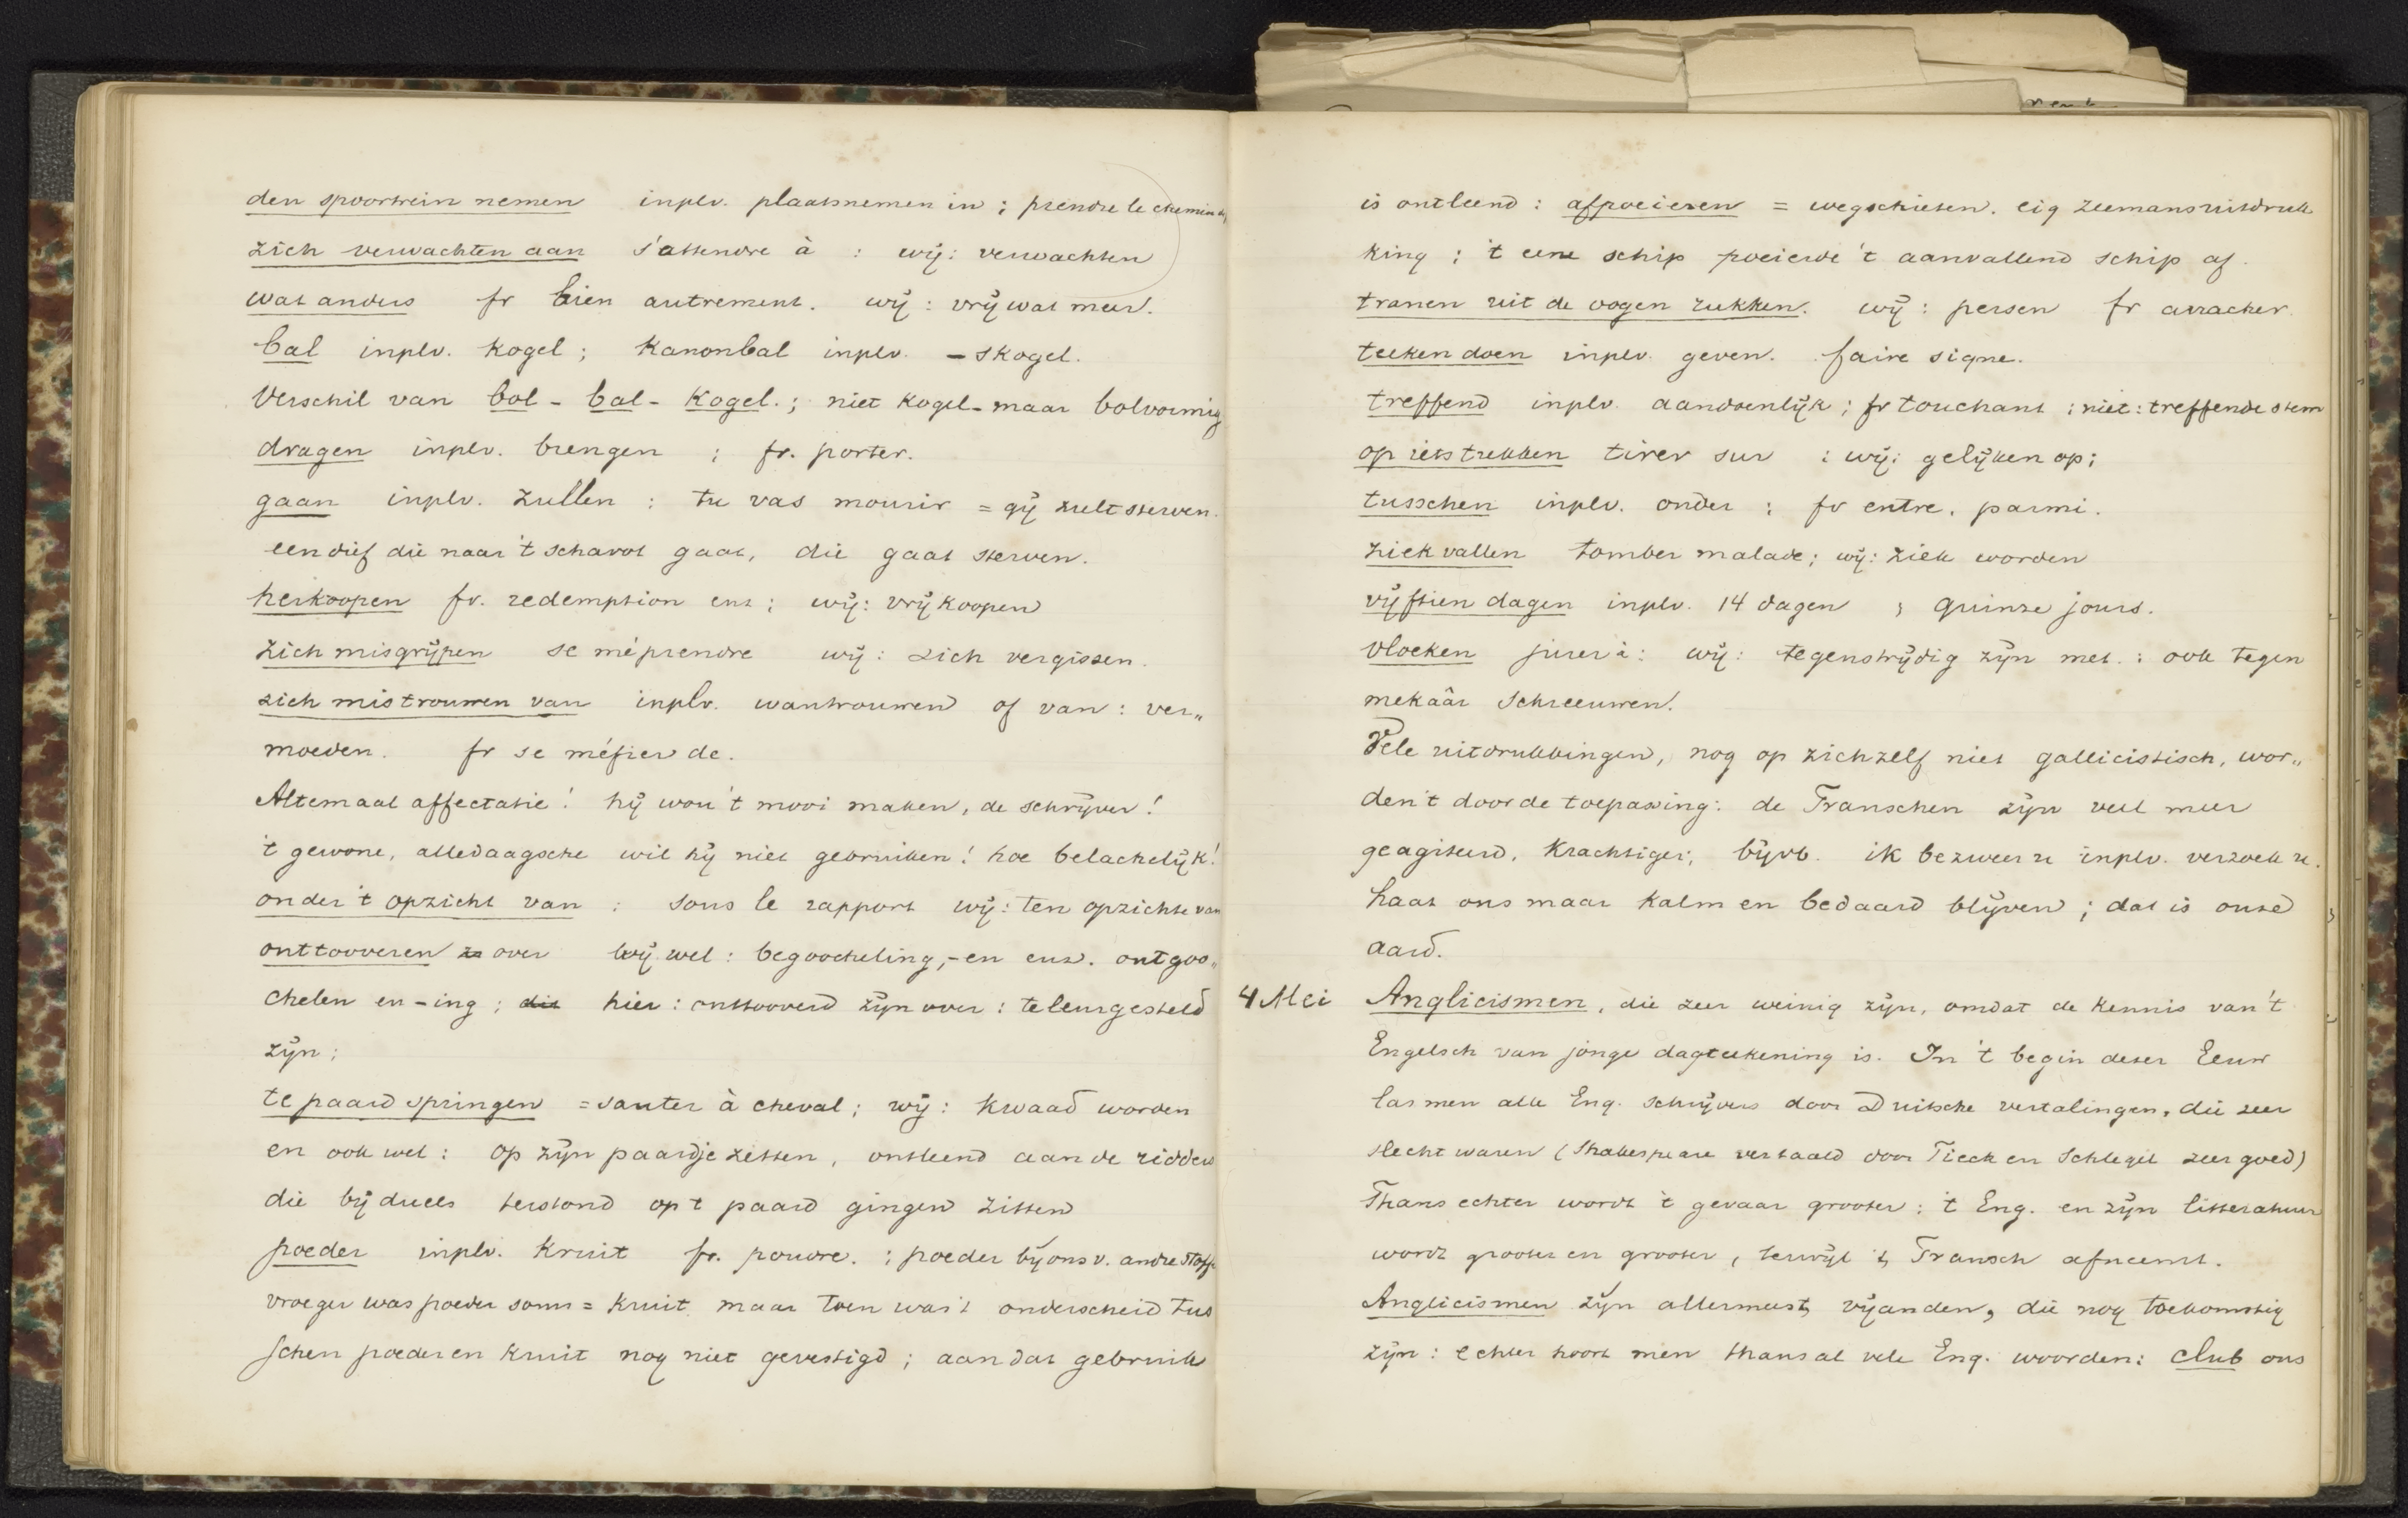 den spoortrein nemen inplv. plaatsnemen in ; prendre le chemin d
zich verwachten aan s'attendre à : wij: verwachten
wat anders fr bien autrement. wij : vrij wat meer.
bal inplv. kogel ; kanonbal inplv. – skogel.
Verschil van bol - bal - kogel. ; niet kogel- maar bolvormig
dragen inplv. brengen ; fr. porter.
gaan inplv. zullen : tu vas mourir = gij zult sterven.
een dief die naar 't schavot gaat, die gaat sterven.
herkoopen fr. redemption enz ; wij: vrijkoopen
zich misgrijpen se méprendre wij : zich vergissen.
zich mistrouwen van inplv. wantrouwen of van : ver„
moeden. fr se méfier de.
Altemaal affectatie ! hij wou 't mooi maken, de schrijver !
't gewone, alledaagsche wil hij niet gebruiken ! hoe belachelijk !
onder 't opzicht van : sous le rapport wij : ten opzichte van
onttooveren over wij wel : begoocheling, -en enz. ontgoo„
chelen en -ing ; dit hier : onttooverd zijn over : teleurgesteld
zijn ;
te paard springen = sauter à cheval ; wij : kwaad worden
en ook wel : op zijn paardje zitten, ontleend aan de ridders
die bij duels terstond op t paard gingen zitten
poeder inplv. kruit fr. poudre. : poeder bij ons v. andre stoffe
vroeger was poeder soms = kruit maar toen was 't onderscheid tus
schen poeder en kruit nog niet gevestigd ; aan dat gebruik
is ontleend : afpoeieren = wegschieten. eig zeemansuitdruk
king ; 't eene schip poeierde 't aanvallend schip af.
tranen uit de oogen rukken. wij : persen fr arracher.
teeken doen inplv. geven. faire signe.
treffend inplv. aandoenlijk ; fr touchant ; niet : treffende stem
op iets trekken tirer sur : wij : gelijken op ;
tusschen inplv. onder ; fr entre, parmi.
ziek vallen tomber malade ; wij : ziek worden
vijftien dagen inplv. 14 dagen ; quinze jours.
vloeken jurer à : wij : tegenstrijdig zijn met. : ook tegen
mekaâr schreeuwen.
Vele uitdrukkingen, nog op zichzelf niet gallicistisch, wor„
den't door de toepassing : de Franschen zijn veel meer
geagiteerd, krachtiger ; bijvb. ik bezweer u inplv. verzoek u.
Laat ons maar kalm en bedaard blijven ; dat is onze
aard.
4 Mei Anglicismen, die zeer weinig zijn, omdat de kennis van 't
Engelsch van jonge dagteekening is. In 't begin dezer Eeuw
las men alle Eng. schrijvers door Duitsche vertalingen, die zeer
slecht waren (Shakespeare vertaald door Tieck en Schlegel zeer goed)
Thans echter wordt 't gevaar grooter : 't Eng. en zijn litteratuur
wordt grooter en grooter, terwijl 't Fransch afneemt.
Anglicismen zijn allermeest vijanden, die nog toekomstig
zijn : echter hoort men thans al vele Eng. woorden : club ons